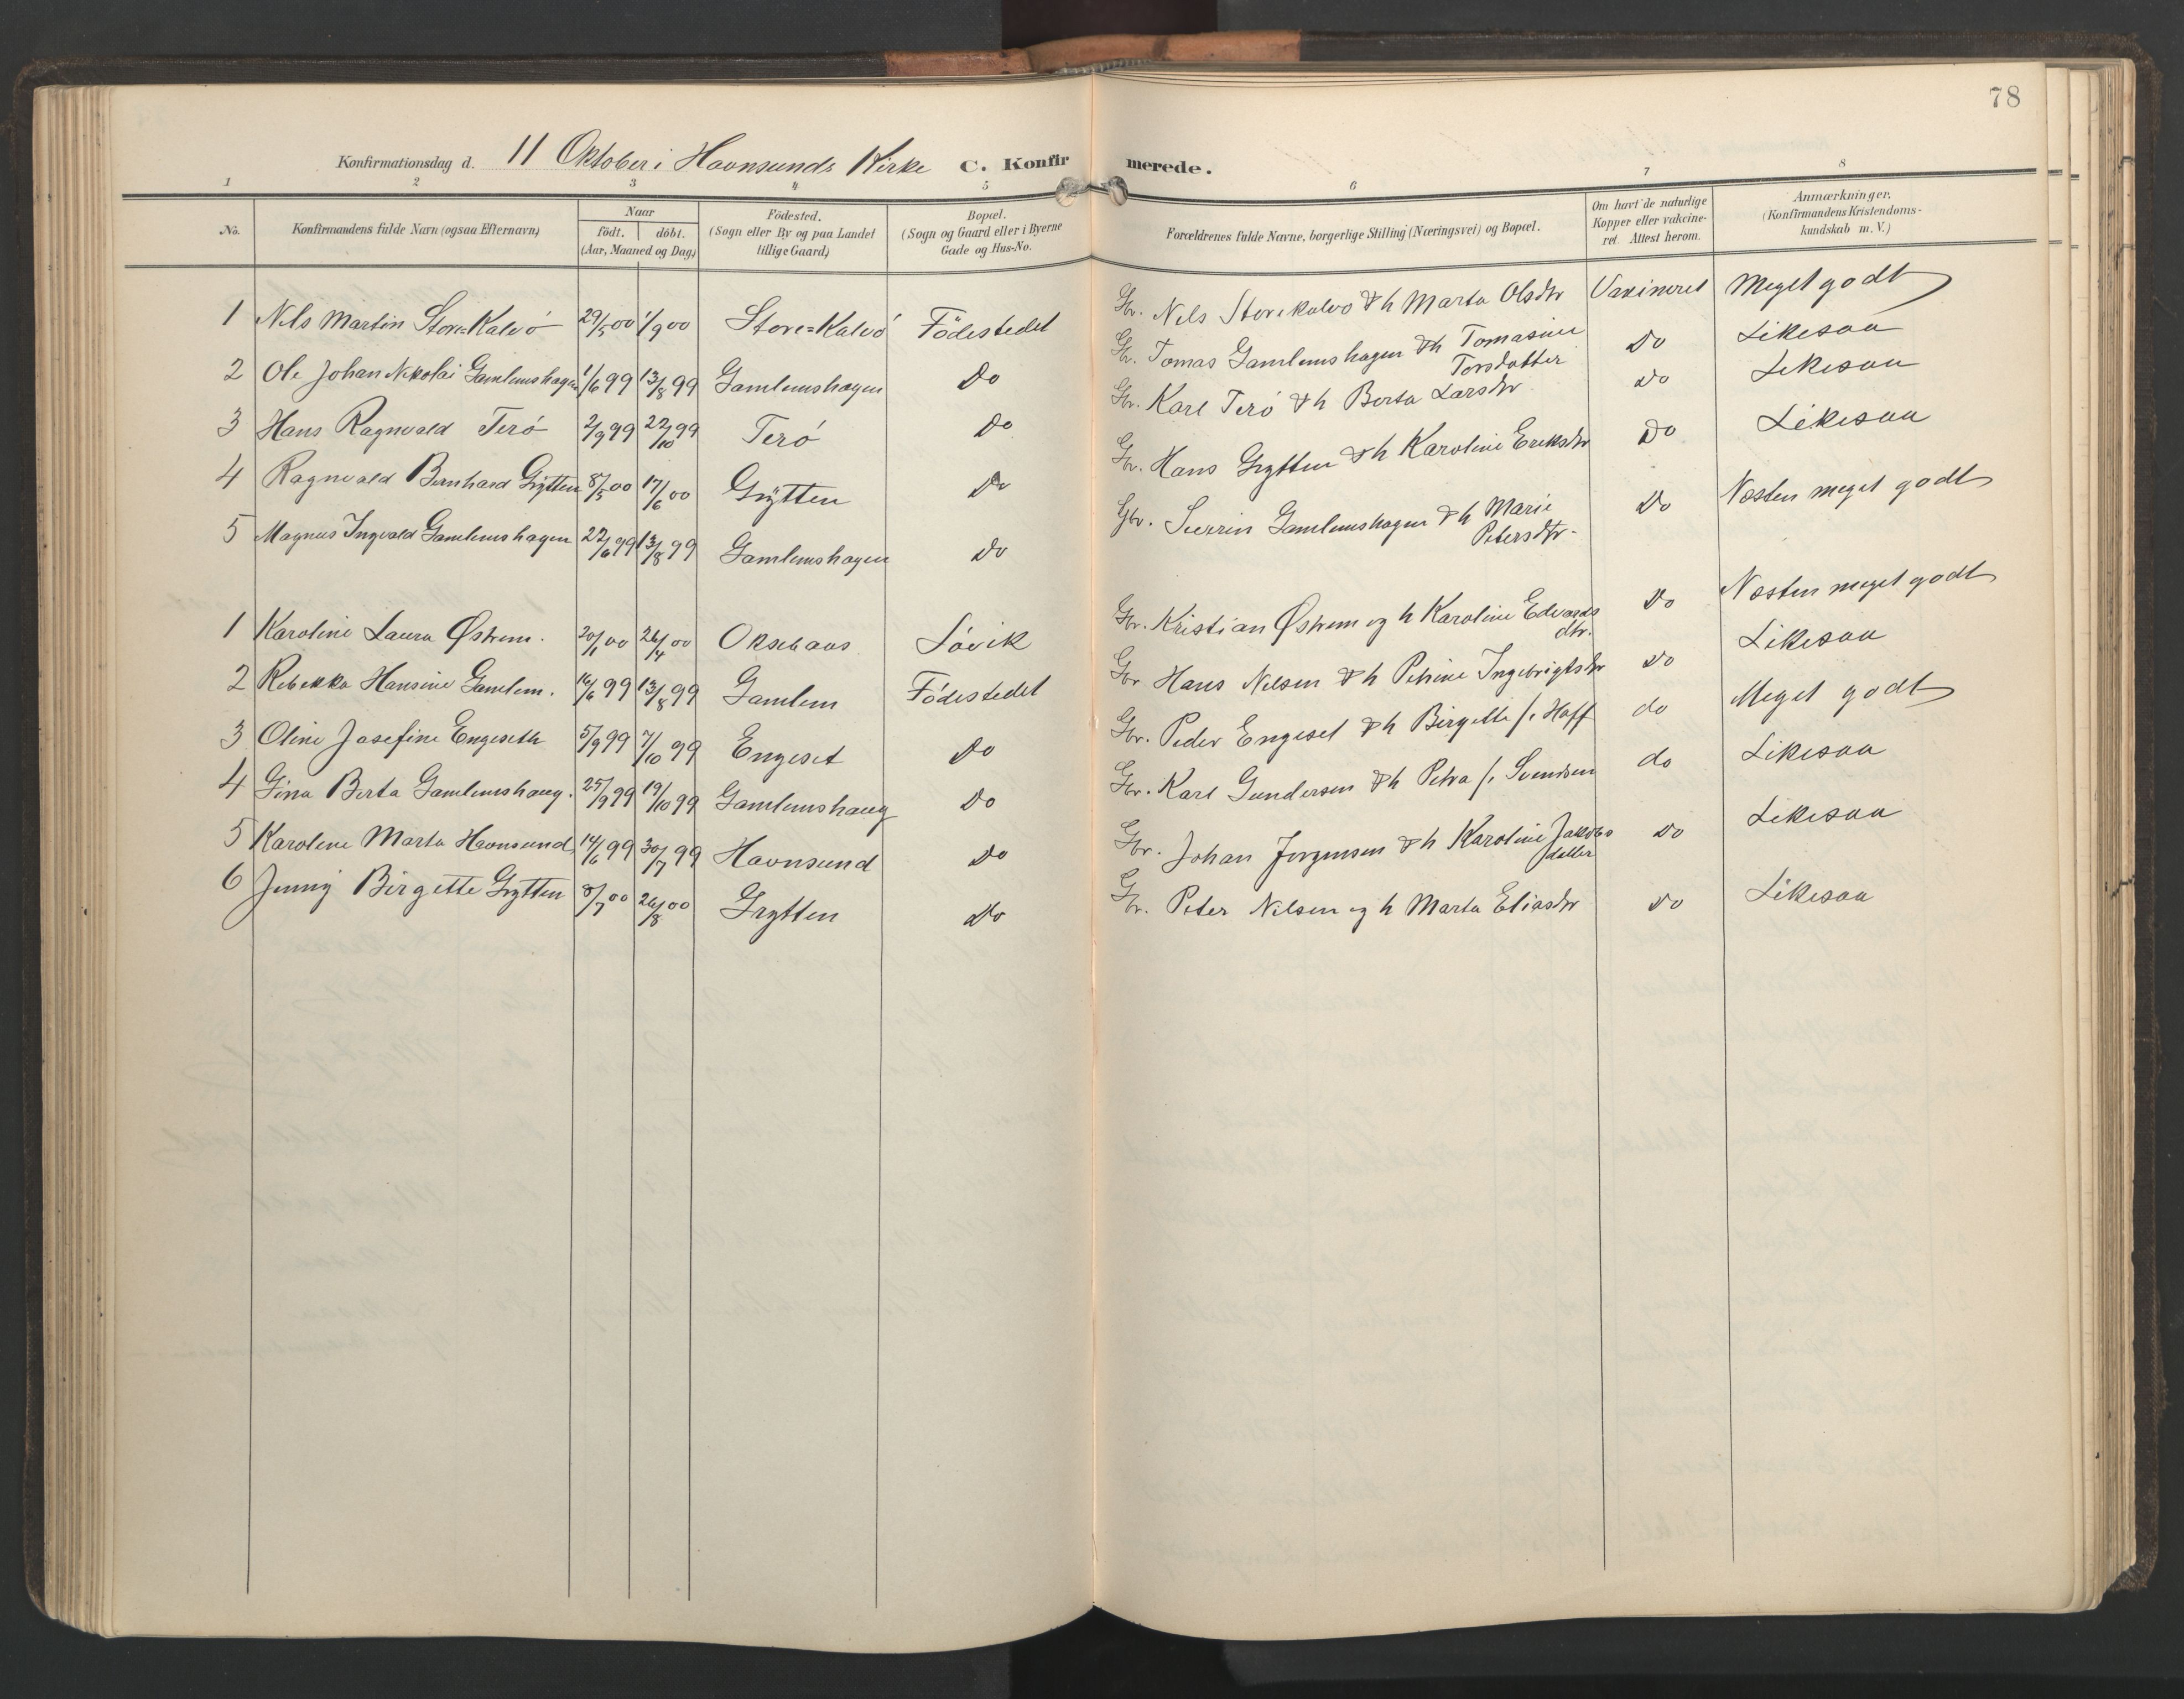 78
Konfirmationsdag d. 11 Oktober i Havnsunds Kirke C. Konfirmerede.
1 2 3 4 5 6 7 8
No. Konfirmandens fulde Navn (ogsaa Efternavn) Naar födt. döbt. (Aar, Maaned og Dag) Födested. (Sogn eller By og paa Landet tillige Gaard) Bopæl. (Sogn og Gaard eller i Byerne Gade og Hus-No. Forældrenes fulde Navne, borgerlige Stilling (Næringsvei) og Bopæl. Om havt de naturlige Kopper eller vakcineret. Attest herom. Anmærkninger. (Konfirmandens Kristendomskundskab m. V.)
1 Nils Martin Store=Kalvö 29/5 00 1/9 00 Store=Kalvö Födestedet Gbr. Nils Storekalvö & h Marta Olsdtr Vakineret Meget godt
2 Ole Johan Nikolai Gamlemshagen 1/6 99 13/8 99 Gamlemshagen Do Gbr. Tomas Gamlemshagen & h Tomasine Torsdatter Do Likesaa
3 Hans Ragnvald Terö 2/9 99 22/10 99 Terö Do Gbr. Karl Terö & h Berta Larsdtr Do Likesaa
4 Ragnvald Bernhard Grytten 8/5 00 17/6 00 Grytten Do Gbr. Hans Grytten & h Karoline Eriksdtr Do Likesaa
5 Magnus Ingvald Gamlemshagen 22/6 99 13/8 99 Gamlemshagen Do Gbr. Sverrin Gamlemshagen & h Marie Petersdtr. Do Næsten meget godt
1 Karoline Laura Østrem. 20/1 00 26/4 00 Oksehaas Lövik Gbr. Kristian Østrem og h Karoline Edvardsdtr. Do Næsten meget godt
2 Rebekka Hansine Gamlem. 16/6 99 13/8 99 Gamlem Födestedet Gbr Hans Nilsen & h Petrine Ingebrigtsdtr Do Likesaa
3 Oline Josefine Engeseth 5/9 99 7/10 99 Engeset Do Gbr. Peder Engeset & h Birgette f. Hoff do Meget godt
4 Gina Berta Gamlemshaug. 25/9 99 19/10 99 Gamlemshaug Do Gbr. Karl Gundersen & h Petra f. Svendsen do Likesaa
5 Karoline Marta Havnsund 14/6 99 30/7 99 Havnsund Do Gbr. Johan Jörgensen & h Karoline Jakobsdatter Do Likesaa
6 Jenny Birgette Grytten 8/7 00 26/8 00 Grytten Do Gbr. Peter Nilsen og h Marta Eliasdtr Do Likesaa